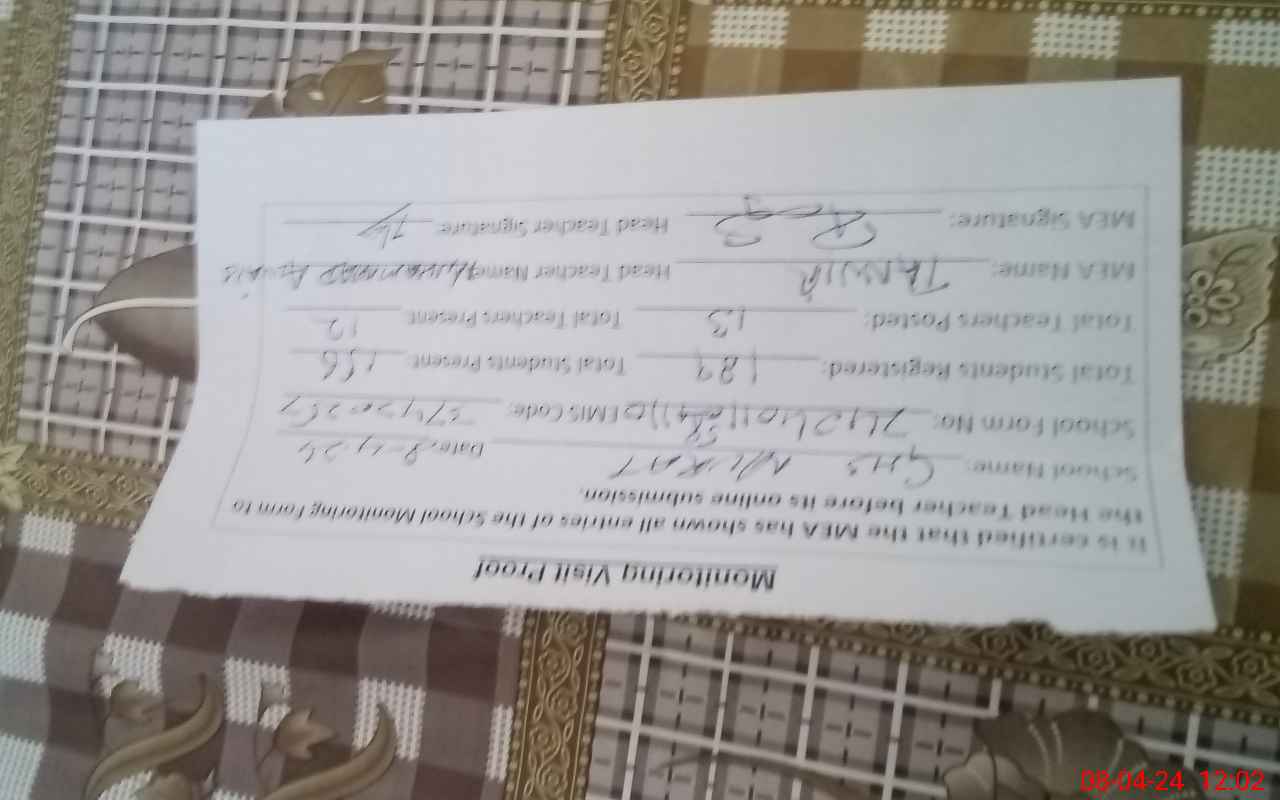 Monitoring Visit Proof
It is certified that the MEA has shown all entries of the School Monitoring Form to
the Head Teacher before its online submission.
School Name: GHS Date: 8-4-24
School Form No: EMIS Code:
Total Students Registered: 189 Total Students Present: 156
Total Teachers Posted: 13 Total Teachers Present: 12
MEA Name: TANVIR Head Teacher Name: MUHAMMAD
MEA Signature: Head Teacher Signature:
08-04-24 12:02